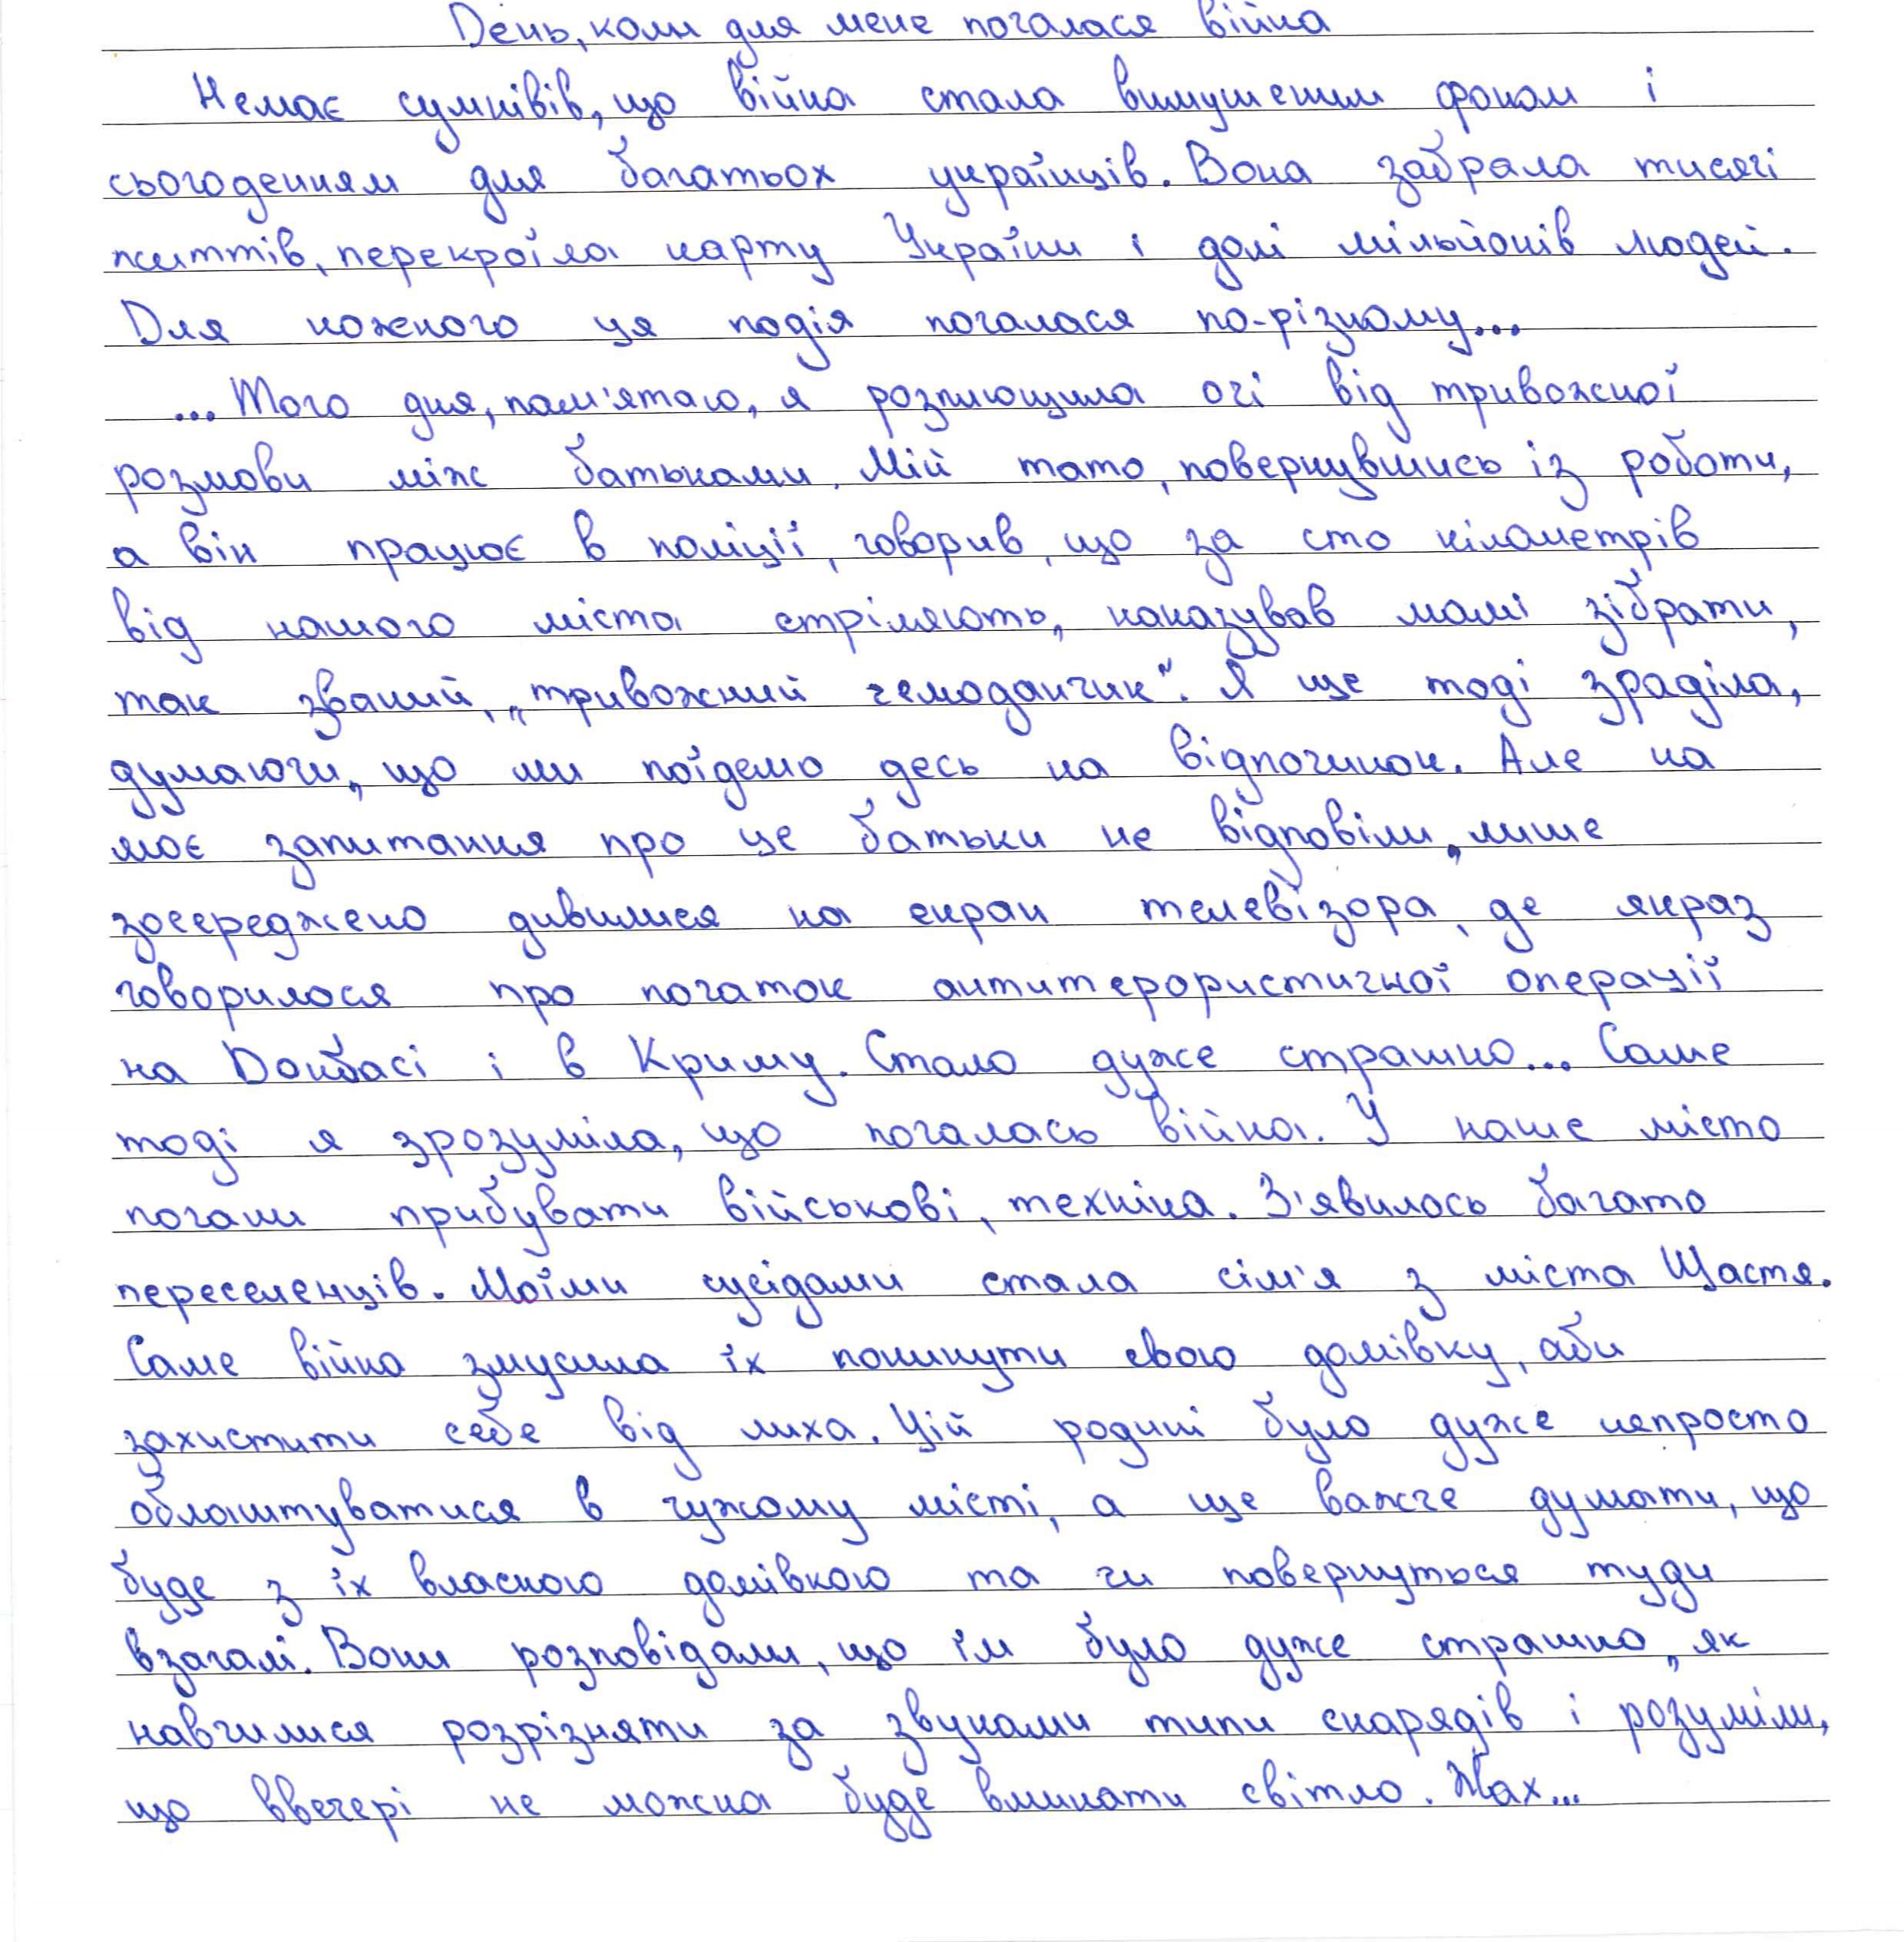 День, коли для мене почалася війна
Немає сумнівів, що війна стала вимушеним фоном і
сьогоденням для багатьох українців. Вона забрала тисячі
життів, перекроїла карту України і долі мільйонів людей.
Для кожного ця подія почалася по-різному...
...Того дня, пам'ятаю, я розплющила очі від тривожної
розмови між батьками. Мій тато, повернувшись із роботи,
а він працює в поліції, говорив, що за сто кілометрів
від нашого міста стріляють, наказував мамі зібрати,
так званий, „тривожний чемоданчик". Я ще тоді зраділа,
думаючи, що ми поїдемо десь на відпочинок. Але на
моє запитання про це батьки не відповіли, лише
зосереджено дивилися на екран телевізора, де якраз
говорилося про початок антитерористичної операції
на Донбасі і в Криму. Стало дуже страшно... Саме
тоді я зрозуміла, що почалась війна. У наше місто
почали прибувати військові, техніка. З'явилось багато
переселенців. Моїми сусідами стала сім'я з міста Щастя.
Саме війна змусила їх покинути свою домівку, аби
захистити себе від лиха. Цій родині було дуже непросто
облаштуватися в чужому місті, а ще важче думати, що
буде з їх власною домівкою та чи повернуться туди
взагалі. Вони розповідали, що їм було дуже страшно, як
навчилися розрізняти за звуками типи снарядів і розуміли,
що ввечері не можна буде вмикати світло. Жах...